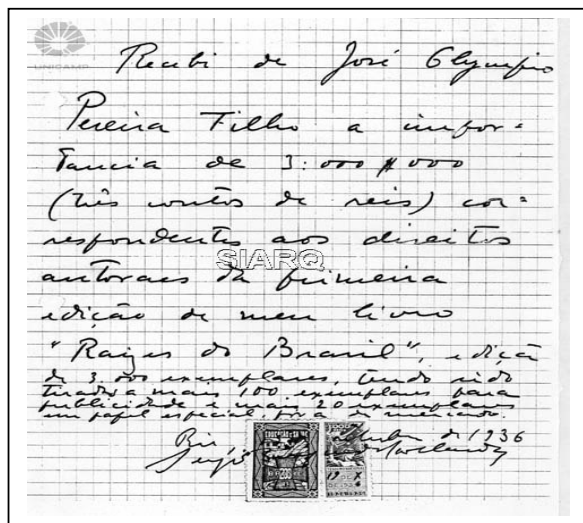 UNICAMP
Recebi de José Olympio
Pereira Filho a impor=
tancia de 3:000$000
(três contos de reis) cor=
respondentes aos direitos
SIARQ
autoraes da primeira
edição de meu livro
"Raizes do Brasil", edição
de 3.000 exemplares, tendo sido
tirados mais 100 exemplares para
publicidade e mais 20 exemplares
em papel especial, fora de mercado.
Rio, de 1936
200
19 X